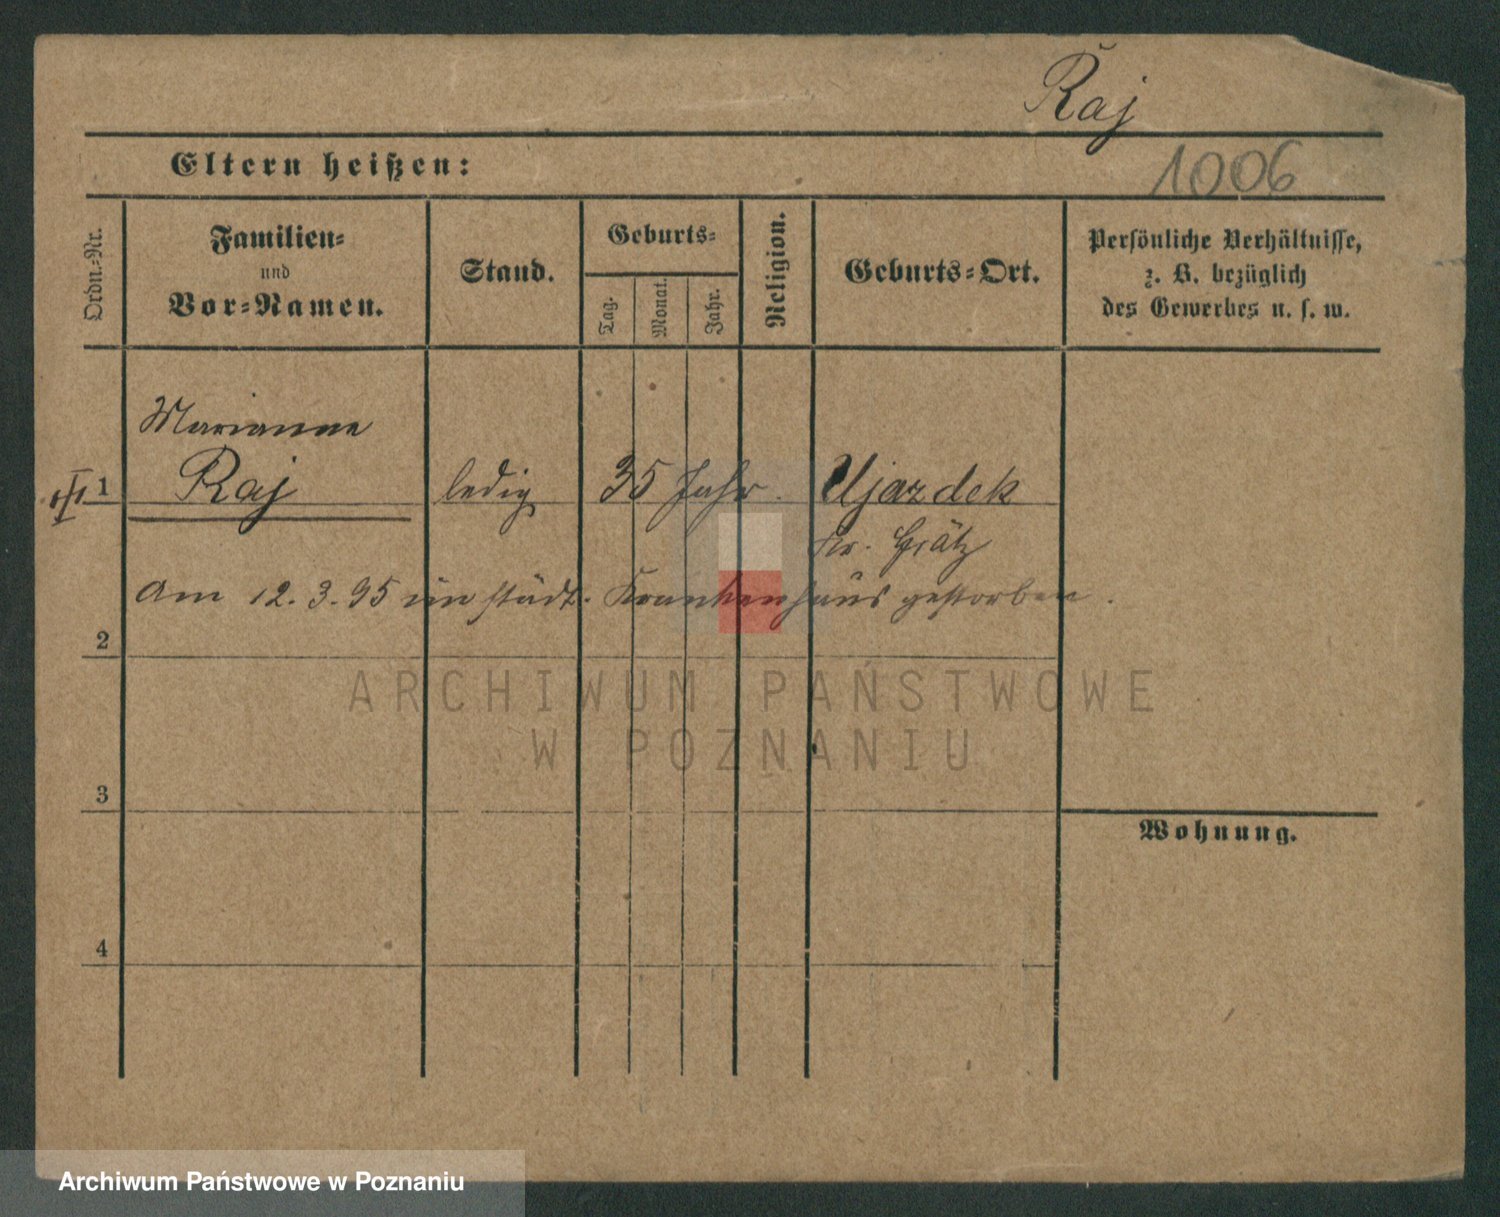 Raj
Eltern heißen:
1006
Ordn.-Nr.
Familien-
und
Vor-Namen.
Stand.
Geburts-
Tag.
Monat.
Jahr.
Religion.
Geburts-Ort.
Persönliche Verhältnisse,
z. B. bezüglich
des Gewerbes u. s. w.
Marianne
1 Raj ledig 35 Jahr. Ujazdek
Kr. Grätz
Am 12.3.95 im städt. Krankenhaus gestorben.
2
ARCHIWUM PAŃSTWOWE
W POZNANIU
3
Wohnung.
4
Archiwum Państwowe w Poznaniu